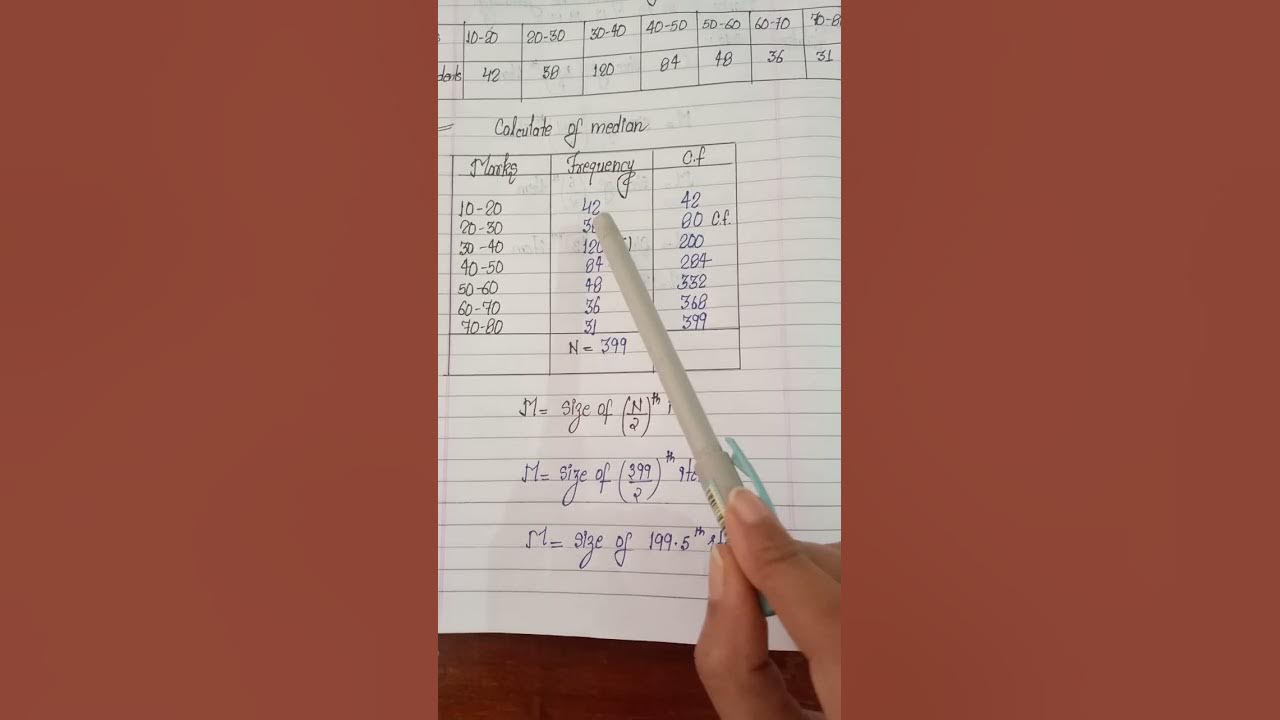 10-20 20-30 30-40 40-50 50-60 60-70 70-8
42 38 120 84 48 36 31
Calculate of median
Marks Frequency f C.f
10-20 42 42
20-30 80 C.f.
30-40 120 200
40-50 84 284
50-60 48 332
60-70 36 368
70-80 31 399
N = 399
M = Size of (N/2)th
M = Size of (399/2)th
M = Size of 199.5th